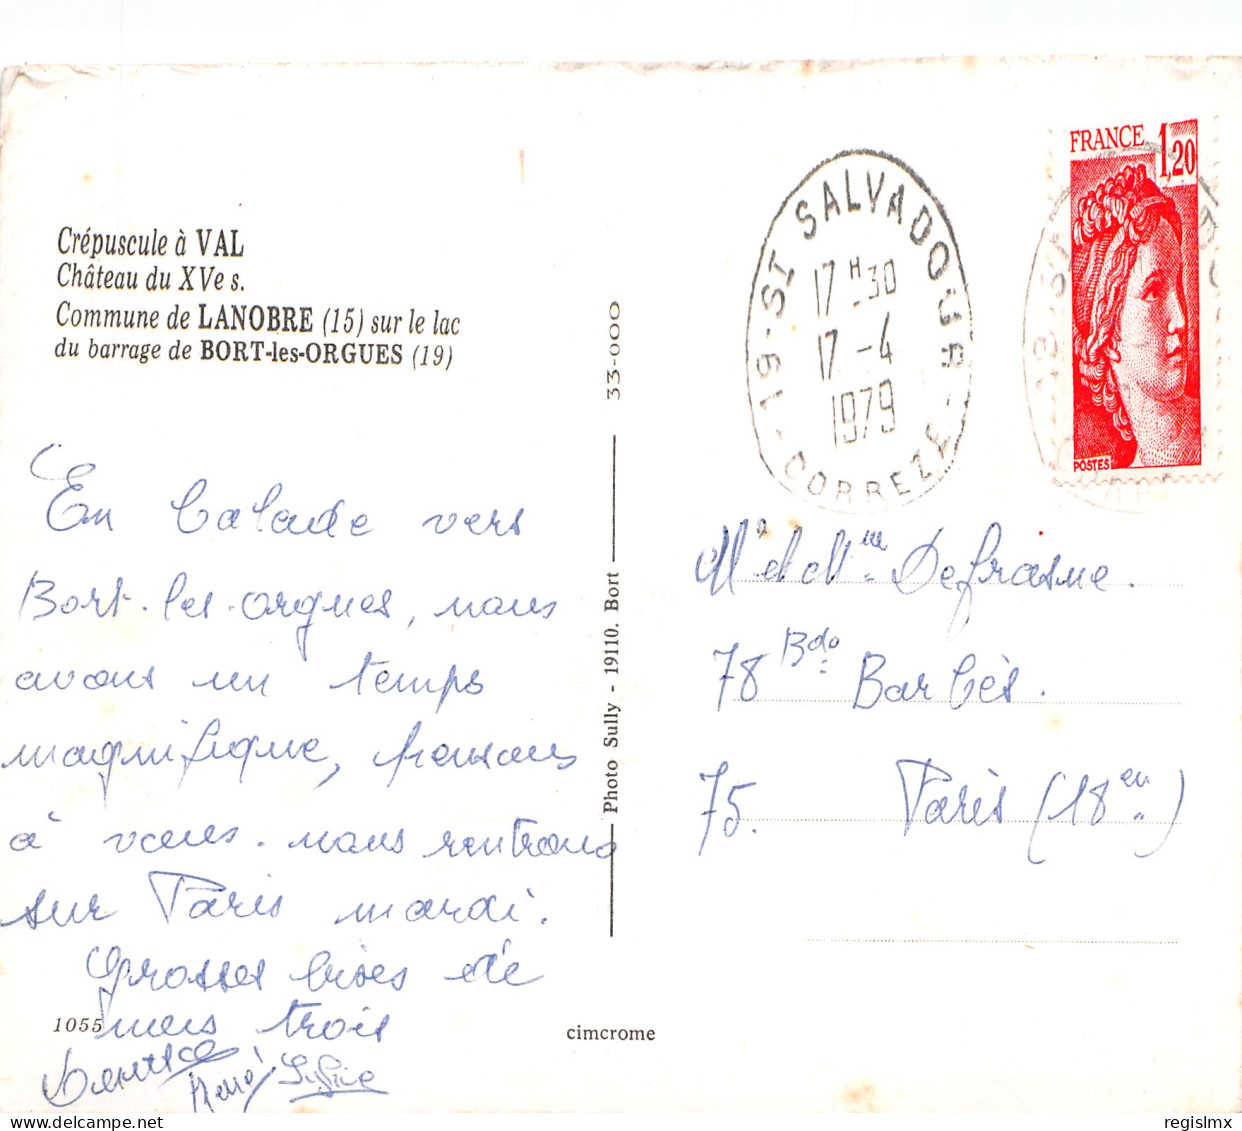 Crépuscule à VAL
Château du XVe s.
Commune de LANOBRE (15) sur le lac
du barrage de BORT-les-ORGUES (19)
En balade vers
Bort-les-orgues, nous
avons un temps
magnifique, pensons
à vous. nous rentrons
sur Paris mardi.
Grosses bises de
nous trois
Denise
René Sylvie
1055
33-000
Photo Sully - 19110. Bort
cimcrome
19-ST SALVADOUR-
17 H 30
17 -4
1979
CORREZE
FRANCE 1,20
POSTES
Mr et Mme Defrasne.
78 Bd Barbès.
75. Paris (18en)
regislmx